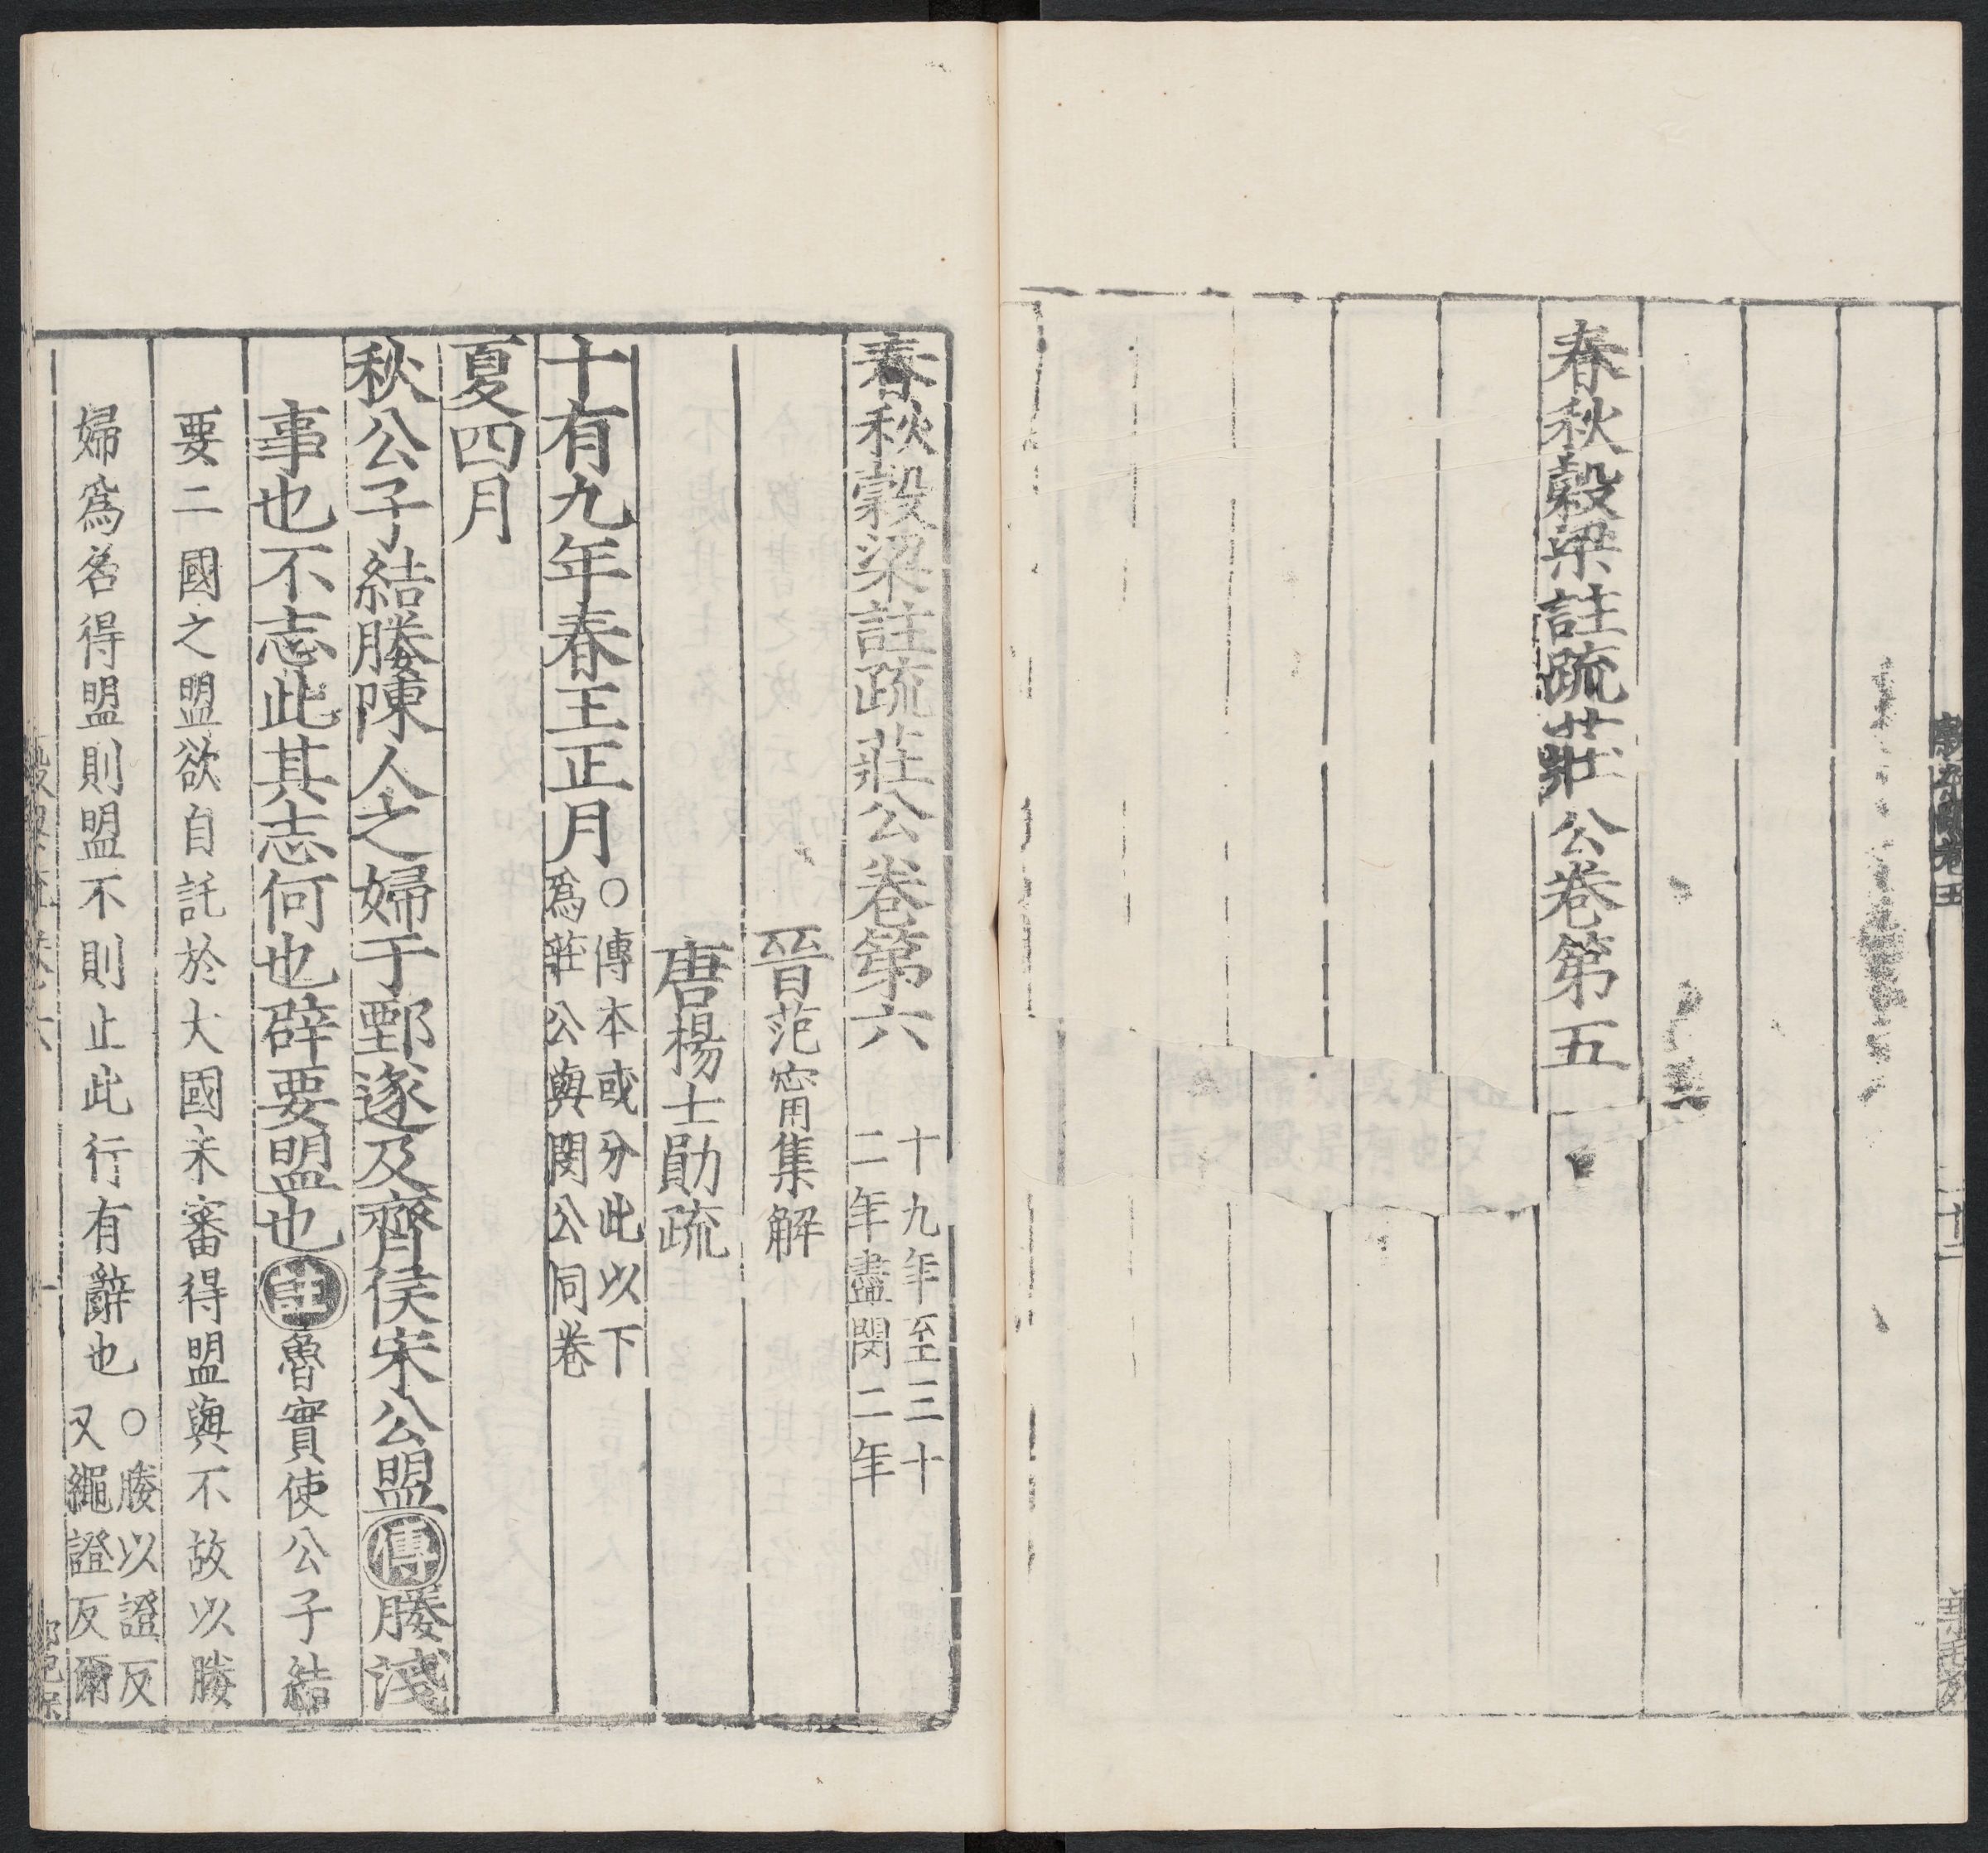 春秋穀梁註疏莊公卷第五
春秋穀梁註疏莊公卷第六
十九年至三十
二年盡閔二年
晉范甯集解
唐楊士勛疏
十有九年春王正月
○傳本或分此以下
爲莊公與閔公同卷
夏四月
秋公子結媵陳人之婦于鄄遂及齊侯宋公盟傳媵淺
事也不志此其志何也辟要盟也註魯實使公子結
要二國之盟欲自託於大國未審得盟與不故以媵
婦爲名得盟則盟不則止此行有辭也
○媵以證反
又繩證反爾